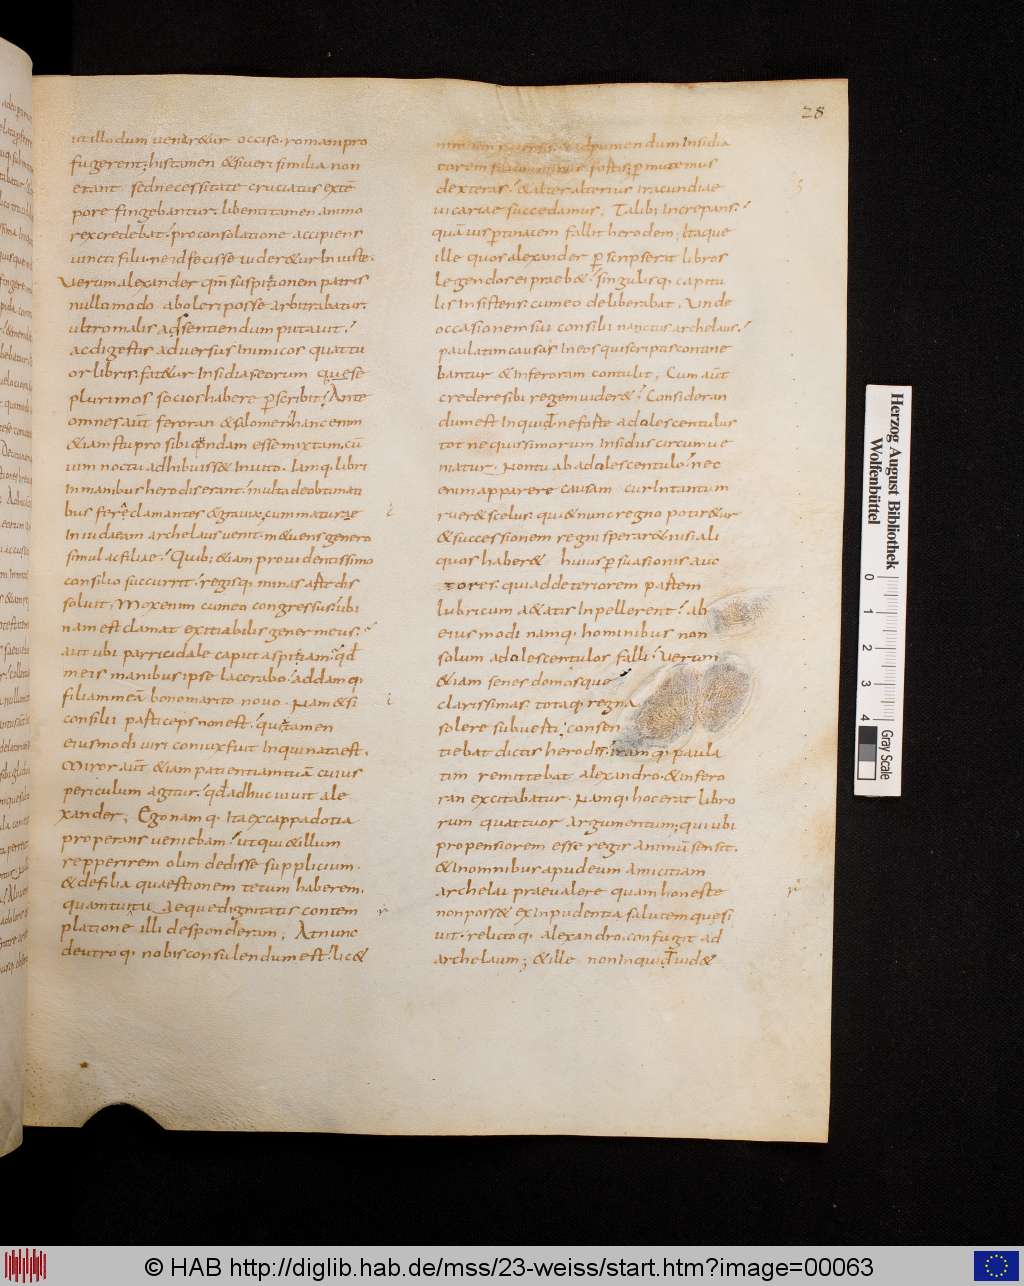 28
ut illo dum venar&ur occiso. romam pro
fugerent; his tamen & siveri similia non
erant. sed necessitate cruciatus extē
pore fingebantur. libenti tamen animo
rex credebat. pro consolatione accipiens
vincti filii. ne id fecisse vider&ur Iniuste.
Verum alexander qm̄ suspitionem patris
nulli modo aboleri posse arbitrabatur.
ultro malis adsentiendum putavit.
ac digestis adversus Inimicos quattu
or libris. fat&ur Insidias. eorum que se
plurimos socios habere p̄scribit. Ante
omnes aūt feroran & salomen. hanc enim
&iam stupro sibi quondam esse mixtam. cū
vim noctu adhibuiss& Invito. Iamq. libri
In manibus herodis erant. multa de optimati
bus fere clamantes & gravia; cum mature
In iudaeam archelaus venit. m&uens genero
simul ac filiae. Quib; &iam providentissimo
consilio succurrit. regisq. minas aste dis
solvit. Mox enim cum eo congressus. ubi
nam est clamat exitiabilis gener meus.
aut ubi parricidale caput aspitiam. qd̄
meis manibus ipse lacerabo. addamq.
filiam meā bono marito novo. Nam &si
consilii particeps non est. qui tamen
eiusmodi viri coniux fuit Inquinata est.
Miror aūt &iam patientiam tuā cuius
periculum agitur. qd̄ adhuc vivit ale
xander; Ego namq. Ita ex cappadotia
properans veniebam. ut qui & illum
repperirem olim dedisse supplicium.
& de filia quaestionem tecum haberem.
quam tuitu aeque dignitatis contem
platione illi desponderam; At nunc
de utroq. nobis consulendum est. lic&
dexteras. & alter alterius Iracundiae
vicariae succedamus; Tali bi Increpans.
quāvis p̄tinacem fallit herodem; Itaque
ille quos alexander p̄scripserit libros
legendos ei praeb&. singulisq. capitu
lis Insistens. cum eo deliberabat. Unde
occasionem sui consilii nanctus archelaus.
paulatim causas In eos qui scriptis contine
bantur & Inferoram contulit; Cum aūt
credere sibi regem vider&. Consideran
dum est Inquid ne fastte adolescentulus
tot nequissimorum Insidiis circumve
niatur. Non tu ab adolescentulo. nec
enim apparere causam cur In tantum
ruer& scelus. qui & nunc regno potir&ur
& successionem regni sperar&. nisi ali
quos haber& huius p̄suasionis auc
tores. qui ad deteriorem partem
lubricum a&atis Inpellerent. ab
eius modi namq. hominibus non
solum adolescentulos falli. verum
&iam senes domosque
clarissimas totaq. regna
solere subverti; consen
tiebat dictis herodis. iramq. paula
tim remittebat alexandro. & Infero
ran excitabatur. Namq. hoc erat libro
rum quattuor argumentum; qui ubi
propensiorem esse regis animū sensit.
& In omnibus apud eum amicitiam
archelai praevalere quam honeste
non poss& ex Inpudentia salutem quesi
vit. relictoq. alexandro. confugit ad
archelaum; & ille non Inquid vid&
Herzog August Bibliothek
Wolfenbüttel
0 1 2 3 4
Gray Scale
© HAB http://diglib.hab.de/mss/23-weiss/start.htm?image=00063